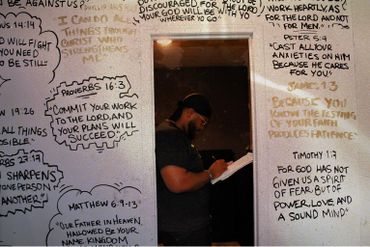 BE AGAINST US?
14:14
WILL FIGHT
YOU NEED
TO BE STILL
I CAN DO ALL
THINGS THROUGH
CHRIST WHO
STRENGTHENS
ME
DISCOURAGED FOR THE LORD
YOUR GOD WILL BE WITH YOU
WHEREVER YO GO"
WORK HEARTILY, AS
FOR THE LORD AND NOT
FOR MEN"
PETER 5:7
"CAST ALL YOUR
ANXIETIES ON HIM
BECAUSE HE CARES
FOR YOU"
JAMES 1:3
BECAUSE YOU
KNOW THE TESTING
OF YOUR FAITH
PRODUCES PATIENCE"
TIMOTHY 1:7
FOR GOD HAS
NOT GIVEN US A SPIRIT
OF FEAR, BUT OF
POWER, LOVE, AND
A SOUND MIND"
PROVERBS 16:3
COMMIT YOUR WORK
TO THE LORD, AND
YOUR PLANS WILL
SUCCEED"
19:26
ALL THINGS
27:17
SHARPENS
ONE PERSON
ANOTHER"
MATTHEW 6:9-13
"OUR FATHER IN HEAVEN,
HALLOWED BE YOUR
NAME, KINGDOM